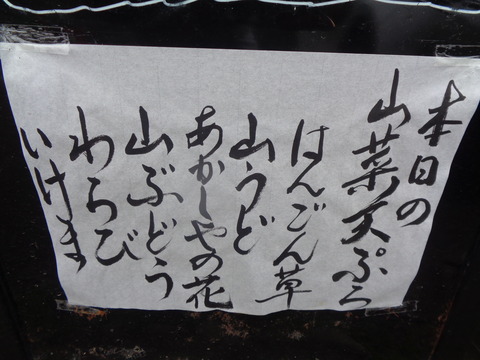 本日の
山菜天ぷら
はんごん草
山うど
あかしやの花
山ぶどう
わらび
いけま